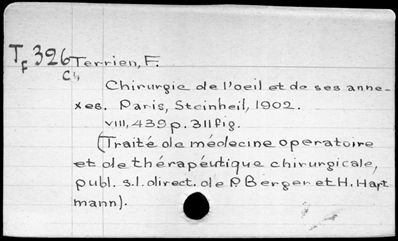 Tf 326 Terrien, F.
C4
Chirurgie de l'oeil et de ses anne-
xes. Paris, Steinheil, 1902.
VIII, 439 p. 311 fig.
(Traité de médecine operatoire
et de thérapéutique chirurgicale,
publ. s.l. direct. de P Berger et H. Hart
mann).